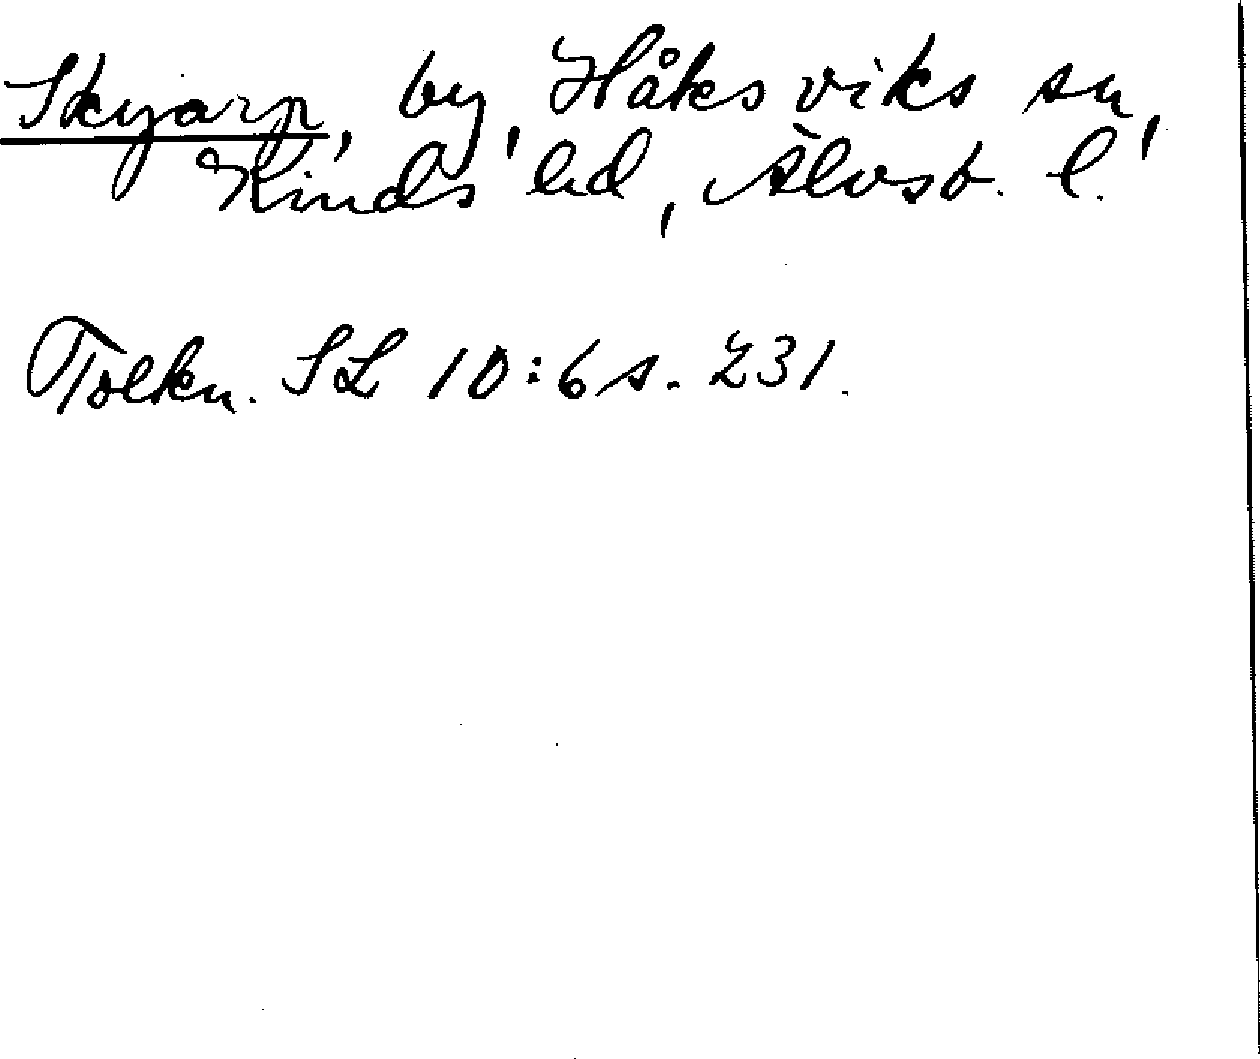 Skyarp, by, Håksviks sn,
Kinds hd, Älvsb. l.
Tolkn. SL 10:6 s. 231.